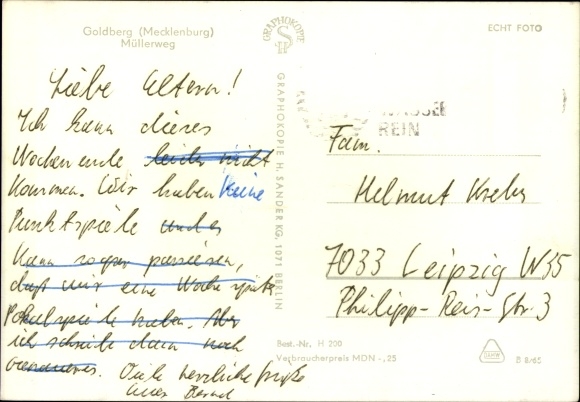 Goldberg (Mecklenburg)
Müllerweg
ECHT FOTO
GRAPHOKOPIE
Liebe Eltern!
Ich kann dieses
Wochenende leider nicht
kommen. Wir haben keine
Punktspiele und es
kann sogar passieren,
daß wir eine Woche später
Pokalspiele haben. Aber
ich schreibe dann noch
genaueres. Viele herzliche Grüße
Euer Bernd
GRAPHOKOPIE H. SANDER KG, 1071 BERLIN
REIN
Fam.
Helmut Krebs
7033 Leipzig W35
Philipp-Reis-Str. 3
Best.-Nr. H 200
Verbraucherpreis MON -,25
B 8/65